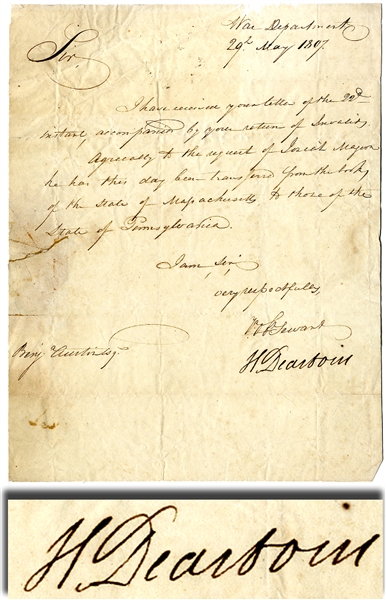 War Department
29th May 1807.
Sir,
I have received your letter of the 22d
instant accompanied by your return of Invalids
Agreeably to the request of Josiah Major
he has this day been transferred from the books
of the State of Massachusetts to those of the
State of Pennsylvania.
I am, Sir,
very respectfully,
Ob. Servant
H. Dearborn
Benj. Austin Esqr.
H. Dearborn